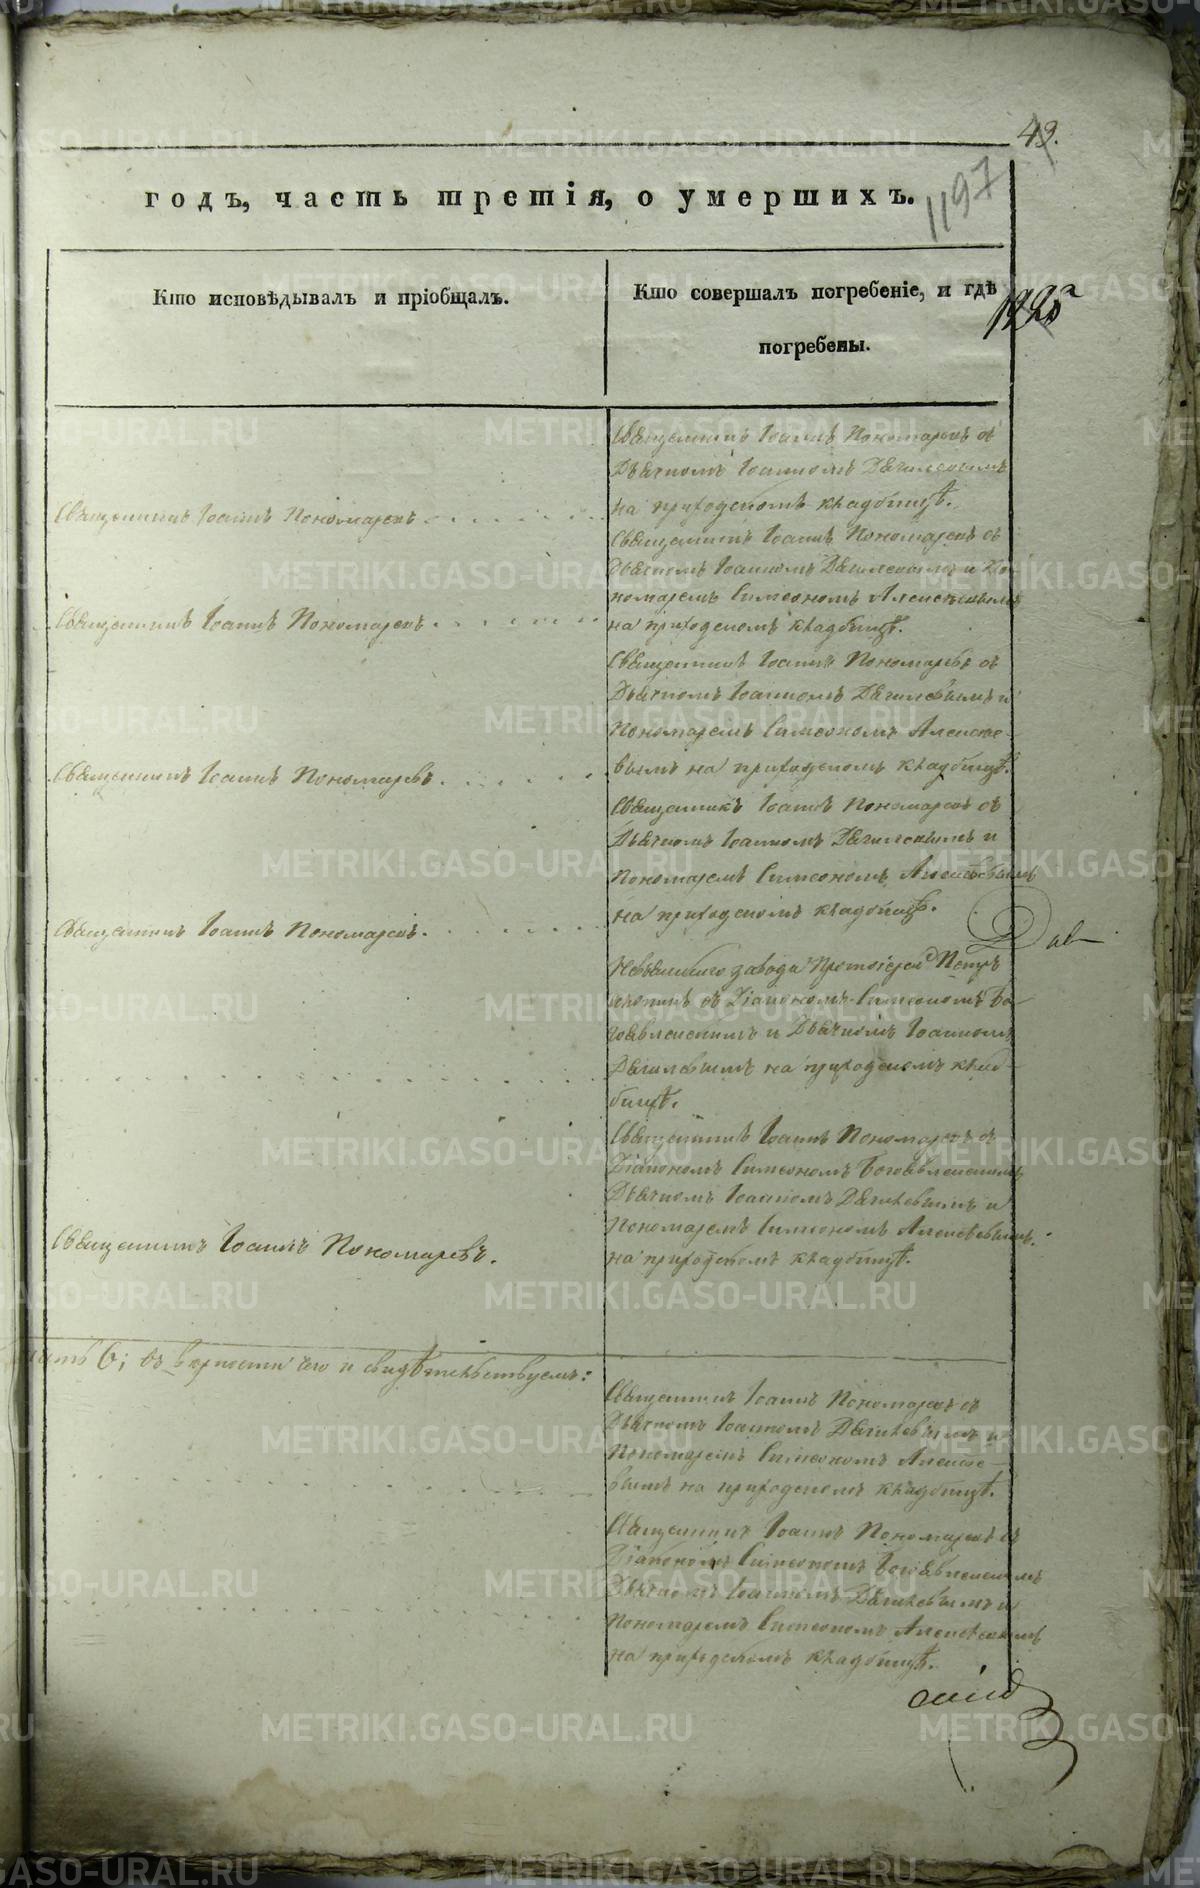 49.
годъ, часть третія, о умершихъ.
1197
Кто исповѣдывалъ и пріобщалъ.
Кто совершалъ погребеніе, и гдѣ
погребены.
1225
Священникъ Іоаннъ Пономаревъ съ
Дьячкомъ Іоанномъ Дягилевымъ
на приходскомъ кладбищѣ.
Священникъ Іоаннъ Пономаревъ
Священникъ Іоаннъ Пономаревъ съ
Дьячкомъ Іоанномъ Дягилевымъ и По-
номаремъ Симеономъ Алексѣевымъ
на приходскомъ кладбищѣ.
Священникъ Іоаннъ Пономаревъ
Священникъ Іоаннъ Пономаревъ съ
Дьячкомъ Іоанномъ Дягилевымъ и
Пономаремъ Симеономъ Алексѣе-
вымъ на приходскомъ кладбищѣ.
Священникъ Іоаннъ Пономаревъ
Священникъ Іоаннъ Пономаревъ съ
Дьячкомъ Іоанномъ Дягилевымъ и
Пономаремъ Симеономъ Алексѣевымъ
на приходскомъ кладбищѣ.
Священникъ Іоаннъ Пономаревъ
завода Протоіерей Петръ
съ Діакономъ Симеономъ Бо-
гоявленскимъ и Дьячкомъ Іоанномъ
Дягилевымъ на приходскомъ клад-
бищѣ.
Священникъ Іоаннъ Пономаревъ съ
Діакономъ Симеономъ Богоявленскимъ
Дьячкомъ Іоанномъ Дягилевымъ и
Пономаремъ Симеономъ Алексѣевымъ
на приходскомъ кладбищѣ.
Священникъ Іоаннъ Пономаревъ.
6; въ вѣрности чего и свидѣтельствуемъ:
Священникъ Іоаннъ Пономаревъ съ
Дьячкомъ Іоанномъ Дягилевымъ и
Пономаремъ Симеономъ Алексѣе-
вымъ на приходскомъ кладбищѣ.
Священникъ Іоаннъ Пономаревъ съ
Діакономъ Симеономъ Богоявленскимъ
Дьячкомъ Іоанномъ Дягилевымъ и
Пономаремъ Симеономъ Алексѣевымъ
на приходскомъ кладбищѣ.
METRIKI.GASO-URAL.RU